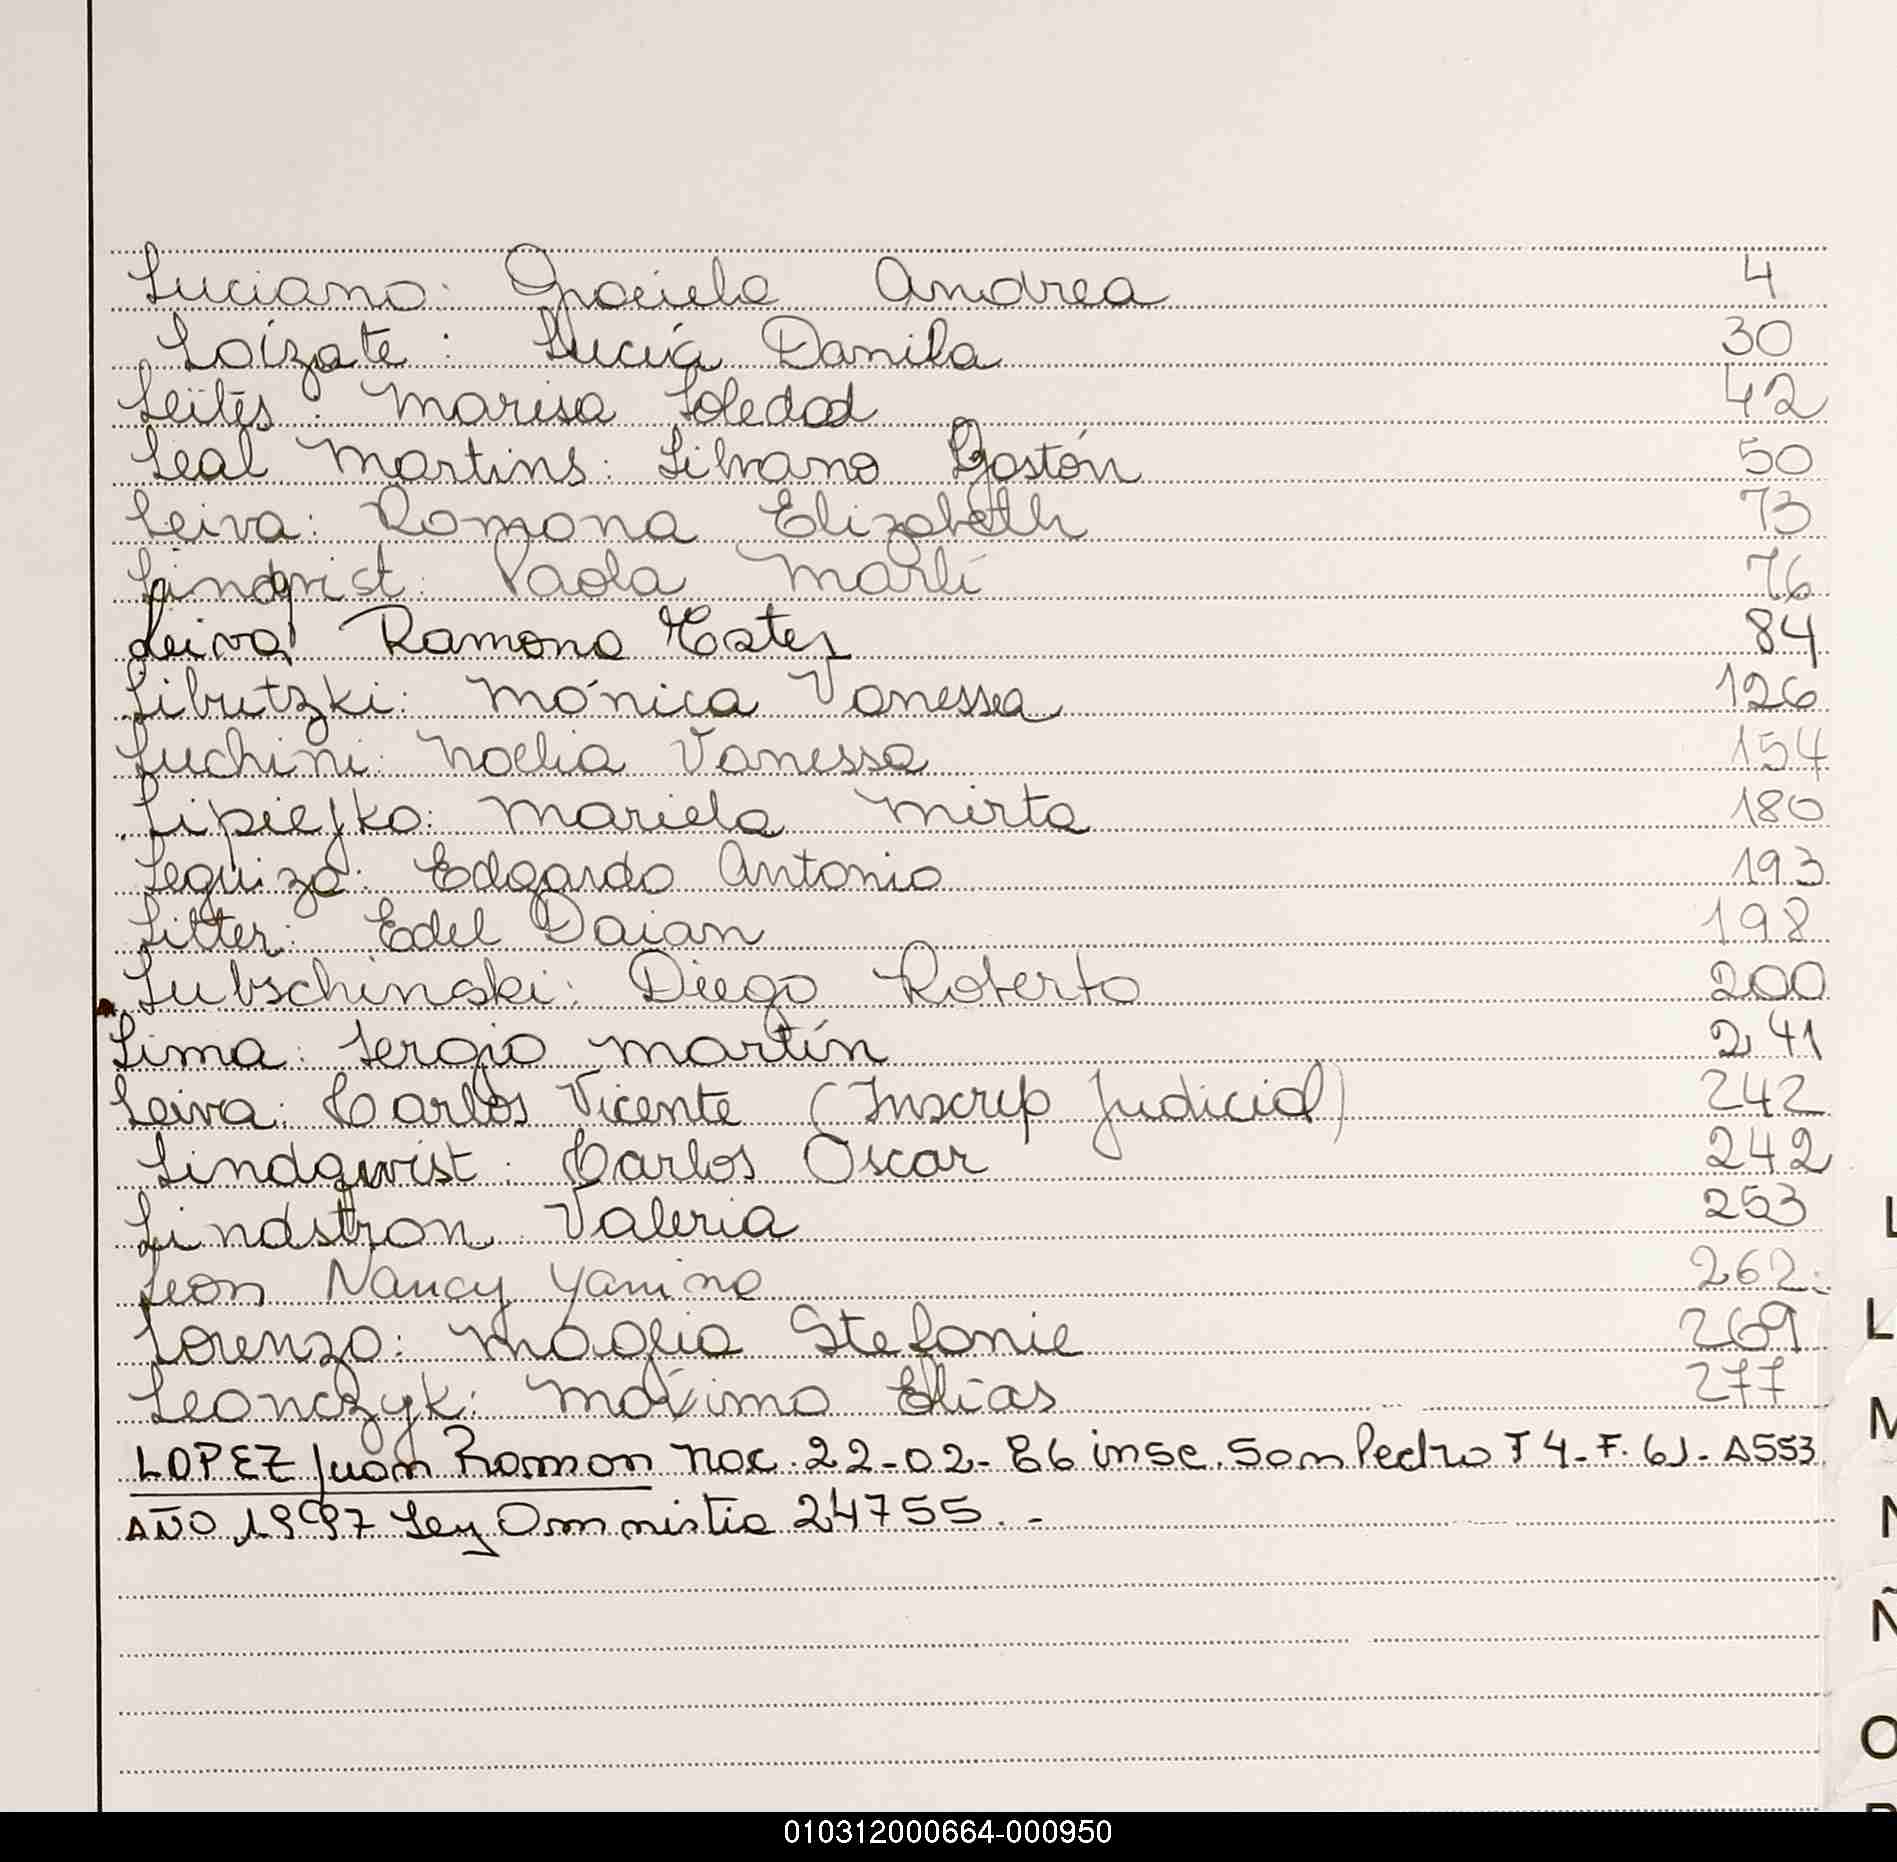 Luciano: Graciela Andrea 4
Loízate: Lucía Danila 30
Leites: Marisa Soledad 42
Leal Martins: Silvano Gastón 50
Leiva: Ramona Elizabeth 73
Lindqvist: Paola Marlí 76
Leiva Ramona Ester 84
Libutzki: Mónica Vanessa 126
Luchini: Noelia Vanessa 154
Lipiejko: Mariela Mirta 180
Leguiza: Edgardo Antonio 193
Litter: Edel Daian 198
Lubschinski: Diego Roberto 200
Lima: Sergio Martín 241
Leiva: Carlos Vicente (Inscrip Judicial) 242
Lindqwist: Carlos Oscar 242
Lindstron Valeria 253
Leon Nancy Yanina 262
Lorenzo: Magalia Stefanie 269
Leonczyk: Máximo Elías 277
LOPEZ Juan Ramon Nac. 22-02-86 insc. San Pedro T 4-F. 61- A553
AÑO 1997 Ley Amnistia 24755.-
L
L
M
N
Ñ
O
010312000664-000950